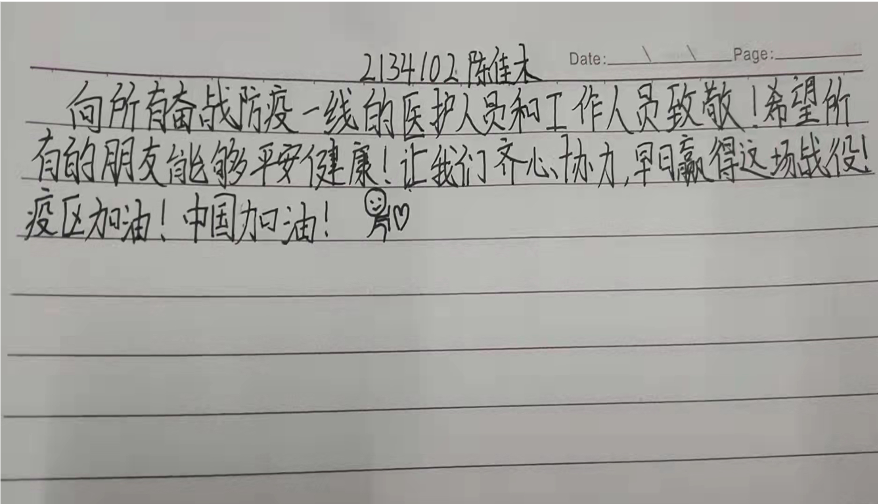 Date: \ \ Page:
2134102 陈佳木
向所有奋战防疫一线的医护人员和工作人员致敬！希望所
有的朋友能够平安健康！让我们齐心协力,早日赢得这场战役！
疫区加油！中国加油！